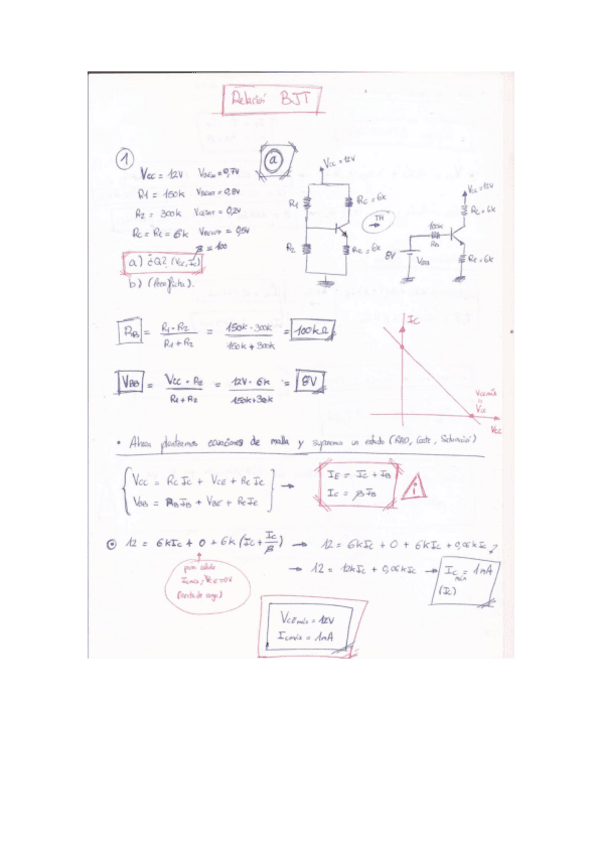 Relación BJT
1
a
Vcc = 12V VBEon = 0,7V
R1 = 150k VBEsat = 0,8V
R2 = 300k VCEsat = 0,2V
Rc = Re = 6k
β = 100
a) ¿Q? (VCE, Ic)
b)
Vcc = 12V
R1
Rc = 6k
R2
Re = 6k
TH
Vcc = 12V
Rc = 6k
100k
RBB
8V
VBB
Re = 6k
RBB = R1 · R2 / R1 + R2 = 150k · 300k / 150k + 300k = 100kΩ
VBB = Vcc · R2 / R1 + R2 = 12V · 6k / 150k + 30k = 8V
Ic
VCEmáx
Vcc
VCE
• Ahora planteamos ecuaciones de malla y supremos un estado (RAD, Corte, Saturación)
Vcc = Rc Ic + VCE + Re Ie →
VBB = RB IB + VBE + Re Ie
IE = Ic + IB
Ic = β IB
i
12 = 6kIc + 0 + 6k (Ic + Ic/β) → 12 = 6kIc + 0 + 6kIc + 0,06kIc
→ 12 = 12kIc + 0,06kIc → Ic máx = 1mA
(Ic)
para
Icmáx, VCE = 0V
(recta de carga)
VCEmáx = 12V
Icmáx = 1mA